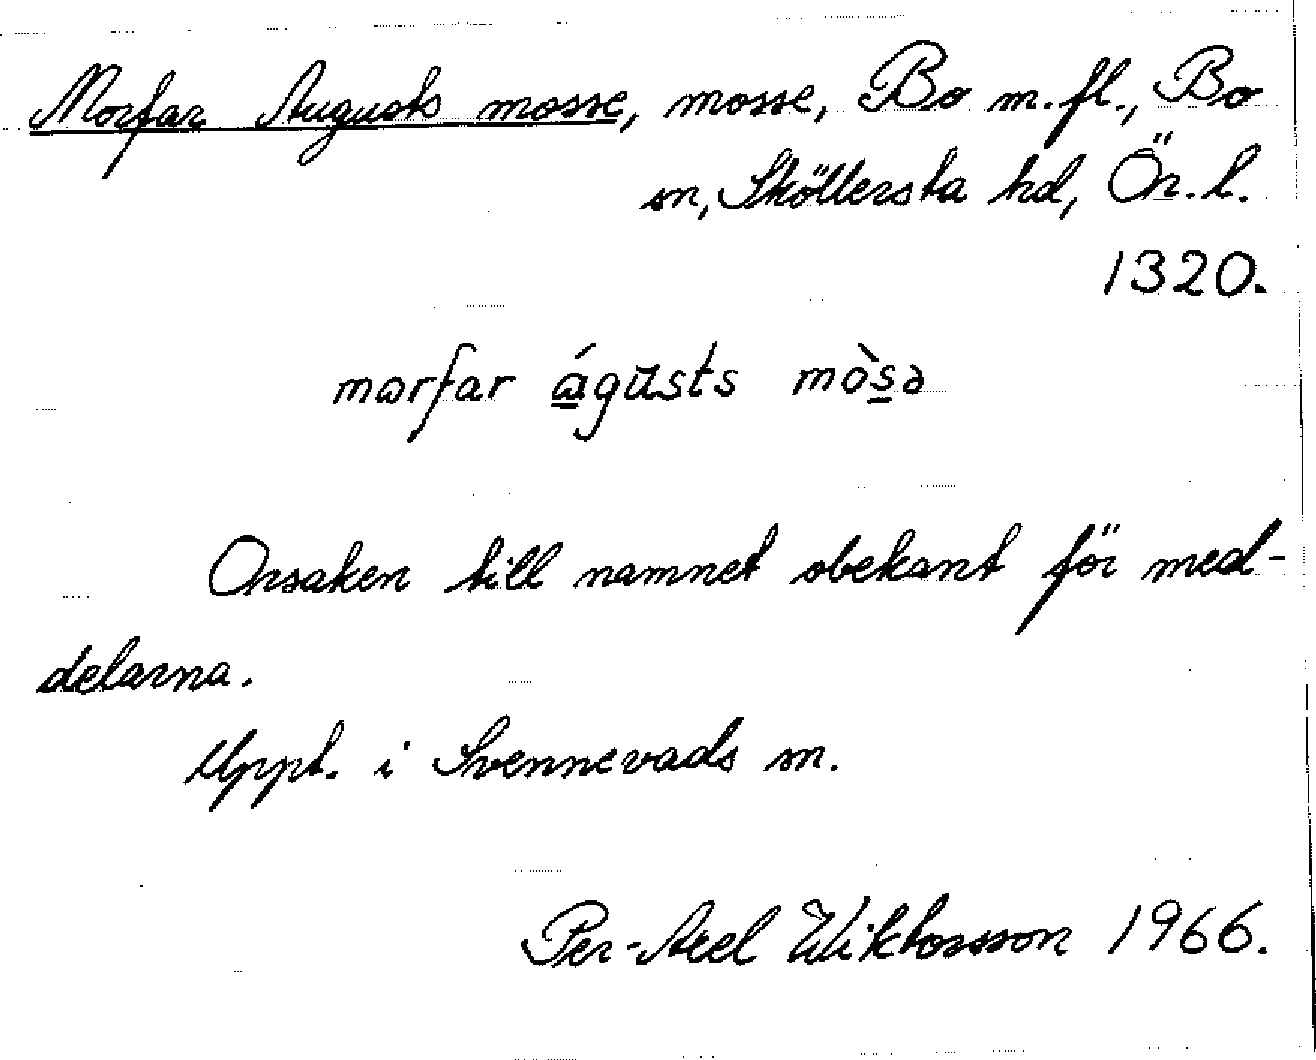 Morfar Augusts mosse, mosse, Bo m.fl., Bo
sn, Sköllersta hd, Ör. l.
1320.
morfar águsts mòsə
Orsaken till namnet obekant för med-
delarna.
Uppt. i Svennevads sn.
Per-Axel Wiktorsson 1966.